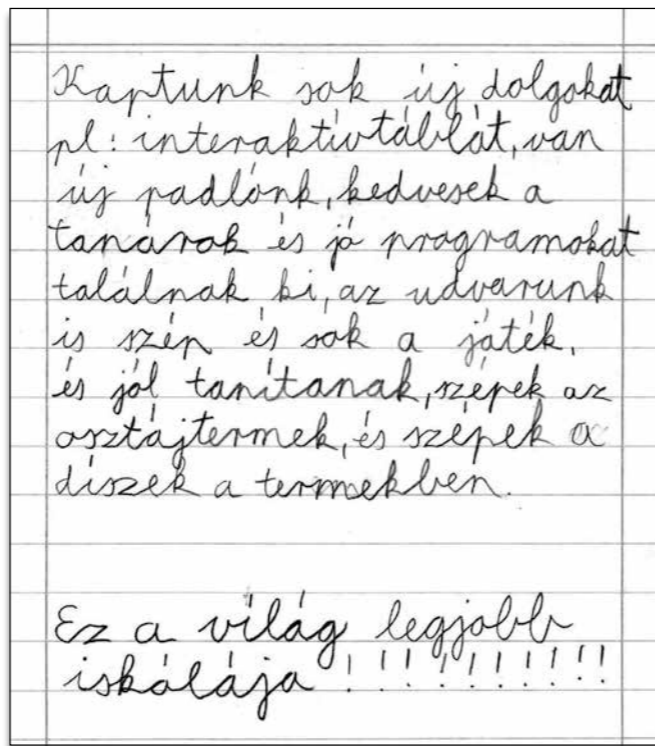 Kaptunk sok új dolgokat
pl: interaktívtáblát, van
új padlónk, kedvesek a
tanárok és jó programokat
találnak ki, az udvarunk
is szép és sok a játék,
és jól tanítanak, szépek az
osztájtermek, és szépek a
díszek a termekben.
Ez a világ legjobb
iskólája !!!!!!!!!!